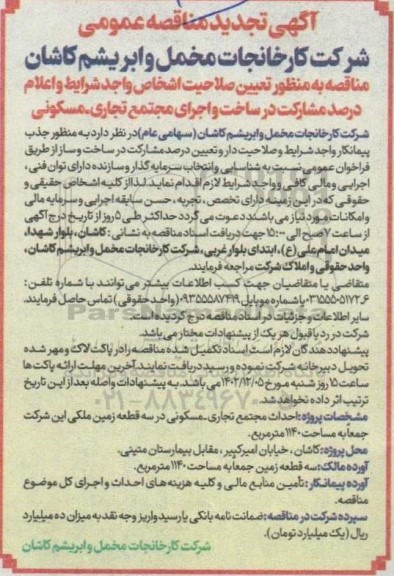 آگهی تجدید مناقصه عمومی
شرکت کارخانجات مخمل و ابریشم کاشان
مناقصه به منظور تعیین صلاحیت اشخاص واجد شرایط و اعلام
درصد مشارکت در ساخت و اجرای مجتمع تجاری-مسکونی
شرکت کارخانجات مخمل و ابریشم کاشان (سهامی عام) در نظر دارد به منظور جذب
پیمانکار واجد شرایط و صلاحیت دار و تعیین درصد مشارکت در ساخت و ساز از طریق
فراخوان عمومی نسبت به شناسایی و انتخاب سرمایه گذار و سازنده دارای توان فنی،
اجرایی و مالی کافی و واجد شرایط لازم اقدام نماید. لذا از کلیه اشخاص حقیقی و
حقوقی که در این زمینه دارای تخصص، تجربه، حسن سابقه اجرایی و سرمایه مالی
و امکانات مورد نیاز می باشند دعوت می گردد حداکثر طی ۵ روز از تاریخ درج آگهی
از ساعت ۷ صبح الی ۱۵:۰۰ جهت دریافت اسناد مناقصه به نشانی: کاشان، بلوار شهدا،
میدان امام علی (ع)، ابتدای بلوار غربی، شرکت کارخانجات مخمل و ابریشم کاشان،
واحد حقوقی و املاک شرکت مراجعه فرمایند.
متقاضی یا متقاضیان جهت کسب اطلاعات بیشتر می توانند با شماره تلفن:
۰۳۱۵۵۵۰۵۱۷۲۶ یا شماره موبایل ۰۹۳۵۵۵۸۷۴۱۹ (واحد حقوقی) تماس حاصل فرمایند.
سایر اطلاعات و جزئیات در اسناد مناقصه درج گردیده است.
شرکت در رد یا قبول هر یک از پیشنهادات مختار می باشد.
پیشنهاد دهندگان لازم است اسناد تکمیل شده مناقصه را در پاکت لاک و مهر شده
تحویل دبیرخانه شرکت نموده و رسید دریافت نمایند. آخرین مهلت ارائه پاکت ها
ساعت ۱۵ روز شنبه مورخ ۱۴۰۲/۱۲/۰۵ می باشد. به پیشنهادات واصله بعد از این تاریخ
ترتیب اثر داده نخواهد شد.
مشخصات پروژه: احداث مجتمع تجاری-مسکونی در سه قطعه زمین ملکی این شرکت
جمعاً به مساحت ۱۱۴۰ مترمربع.
محل پروژه: کاشان، خیابان امیرکبیر، مقابل بیمارستان متینی.
آورده مالک: سه قطعه زمین جمعاً به مساحت ۱۱۴۰ مترمربع.
آورده پیمانکار: تأمین منابع مالی و کلیه هزینه های احداث و اجرای کل موضوع
مناقصه.
سپرده شرکت در مناقصه: ضمانت نامه بانکی یا رسید واریز وجه نقد به میزان ده میلیارد
ریال (یک میلیارد تومان).
شرکت کارخانجات مخمل و ابریشم کاشان